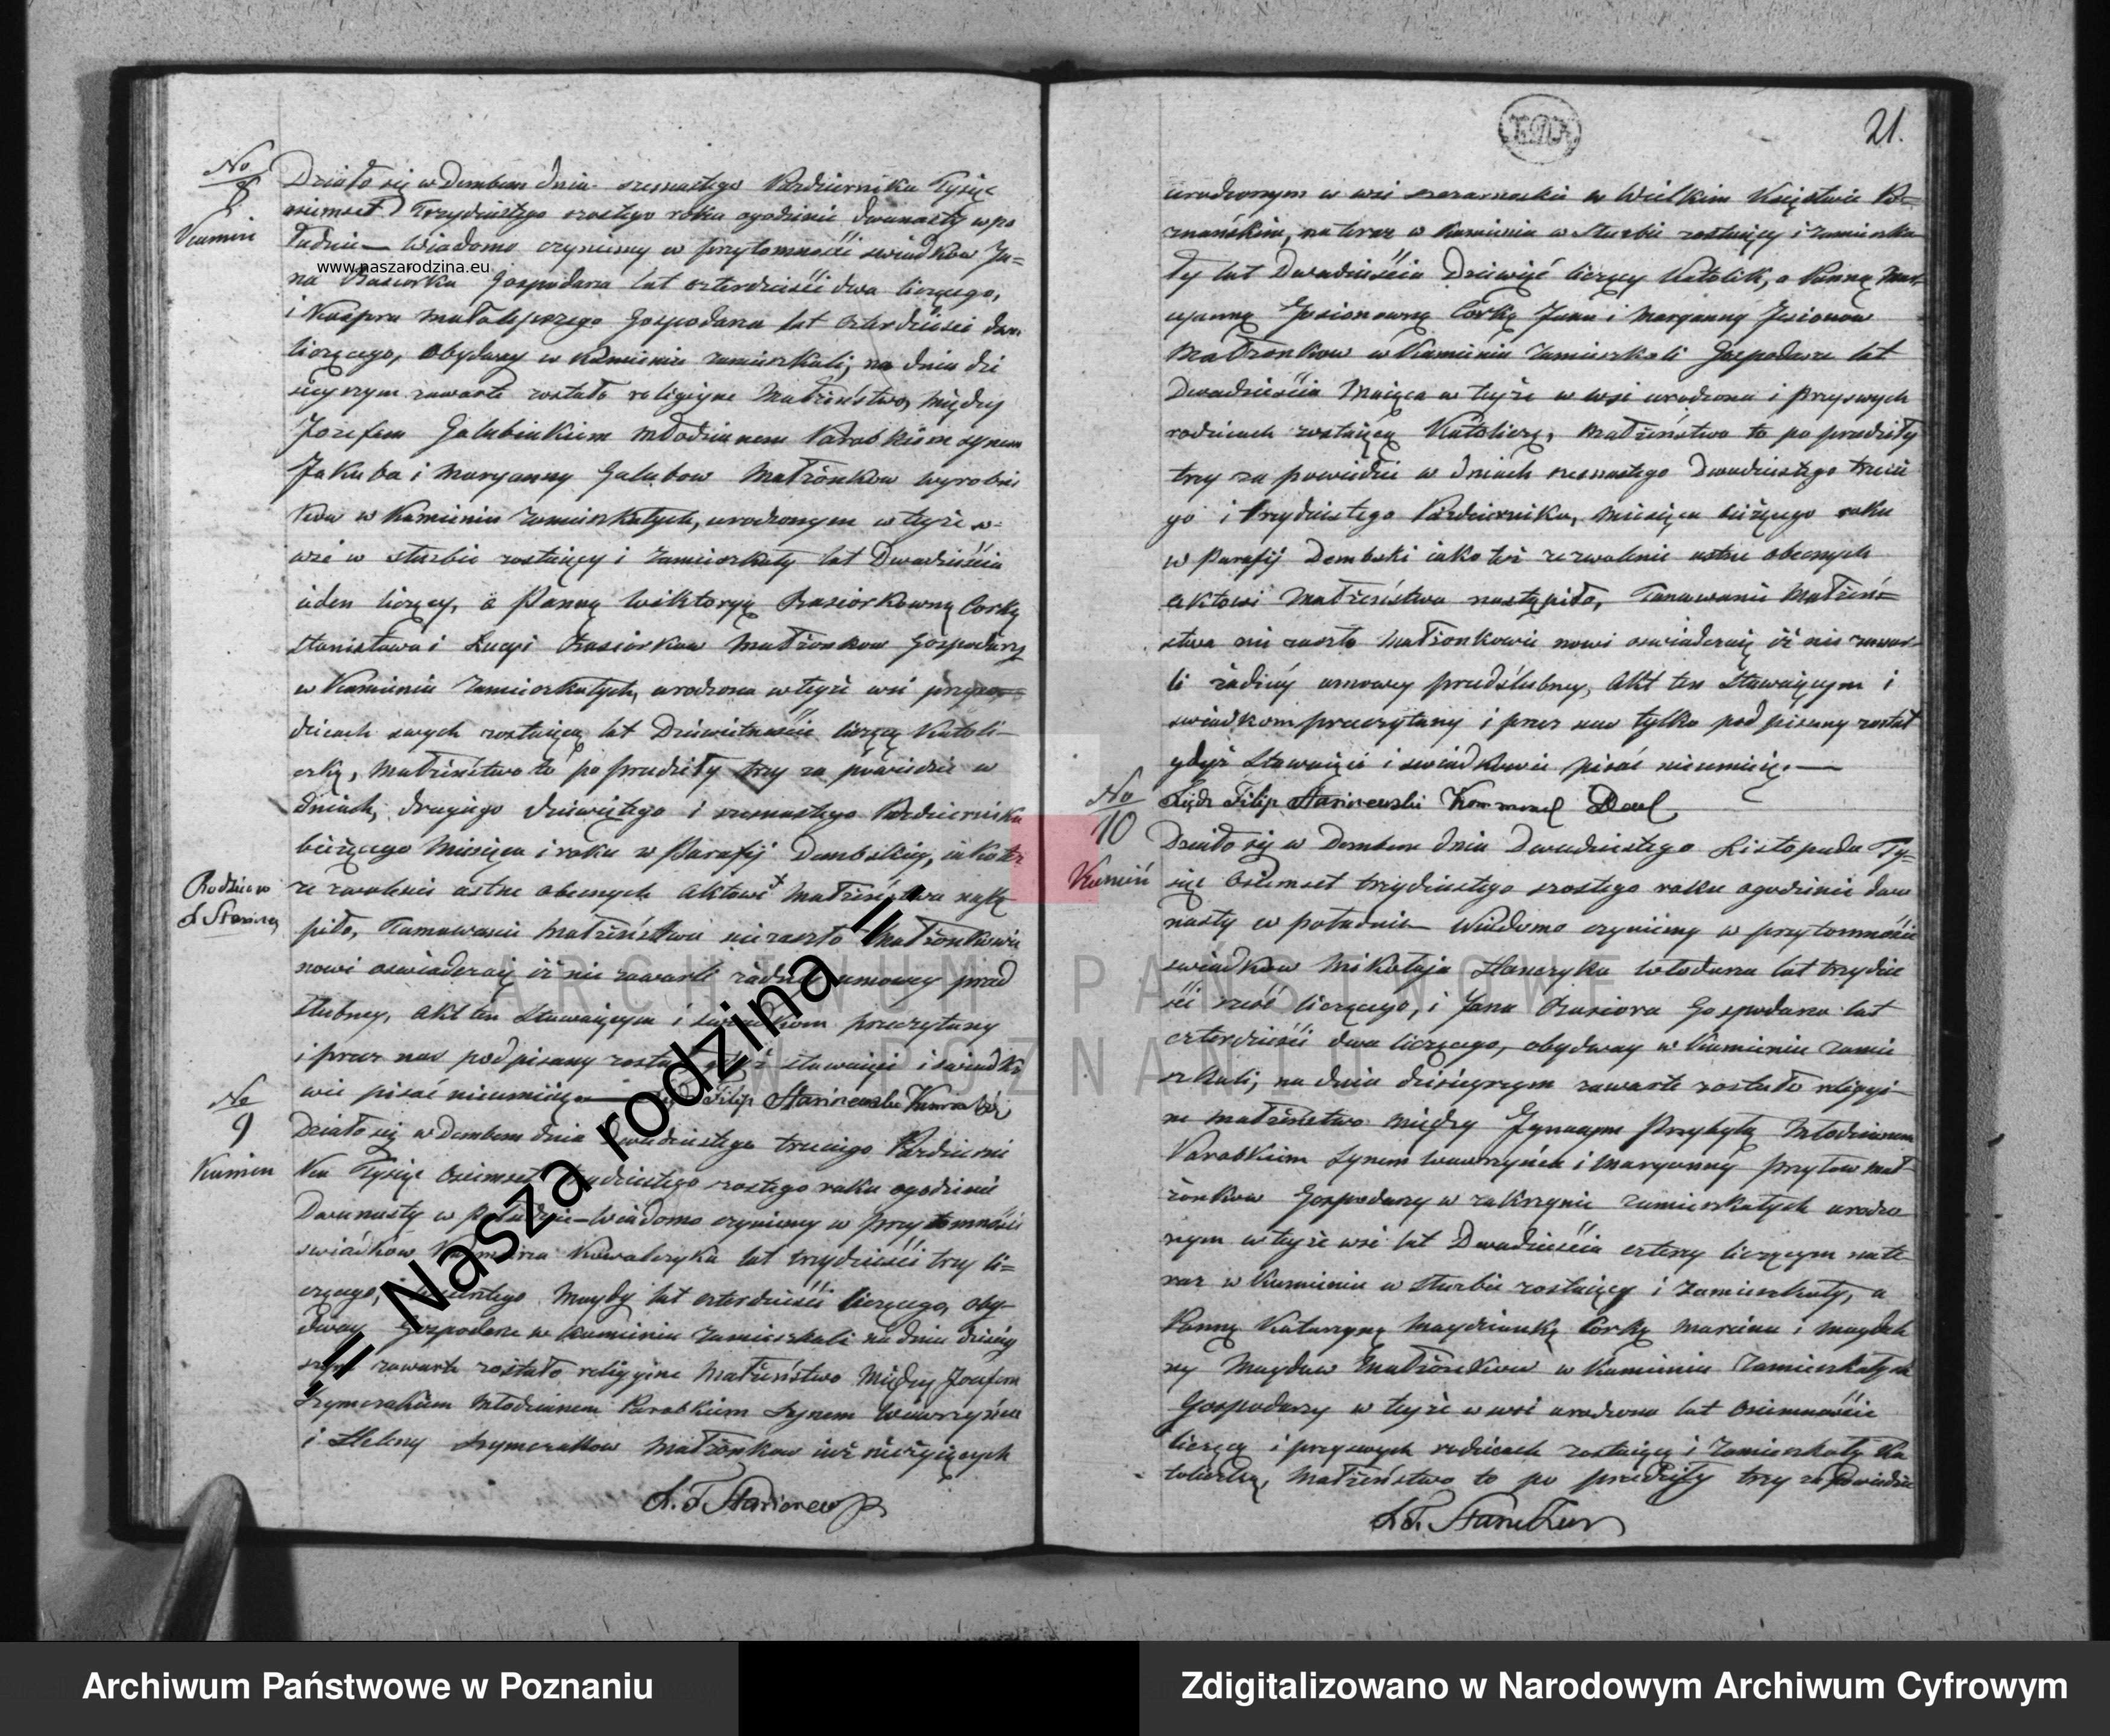 No
8
Kamień
Działo się w Dembem dnia szesnastego Października Tysiąc
osiemset Trzydziestego szóstego roku o godzinie dwunasty w po
łudnie — Wiadomo czyniemy w przytomności świadków Ja=
www.naszarodzina.eu
na Gospodarza lat czterdzieści dwa liczącego,
i Kaspra Małolepszego Gospodarza lat czterdzieści dwa
liczącego, obydway w Kamieniu zamieszkali, na dniu dzi
sieyszym zawarte zostało religiyne Małżeństwo między
Jozefem Galubiakiem Młodzianem Parobkiem synem
Jakuba i Maryanny Galubow Małżonkow wyrobni
kow w Kamieniu zamieszkałych, urodzonym w teyże w-
wsi w służbie zostaiący i zamieszkały lat Dwadzieścia
ieden liczący, a Panną Wiktoryą Corką
Stanisława i Łucyi Małżonkow Gospodarzy
w Kamieniu zamieszkałych, urodzona w teyże wsi przy ro=
dzicach swych zostaiącą lat Dziewietnaście liczącą Katoli-
czką, Małżeństwo to poprzedziły trzy zapowiedzie w
dniach, drugiego dziewiątego i szesnastego Październiku
bieżącego Miesiąca i roku w Parafij Dembskiey, iako też
zezwolenie ustne obecnych aktowi + Małżeństwa nastą
Rodzicow
X Stariszew
piło, Tamowanie Małżeństwa niezaszło Małżonkowie
nowi oświadczaią iż nie zawarli żadney umowy przed
ślubney, akt ten Stawaiącym i świadkom przeczytany
i przez nas podpisany został gdyż stawaiący i świadko
wie pisać nieumieią. — Filip
No
9
Kamien
Działo się w Dembem dnia Dwudziestego trzeciego Październi
ka Tysiąc Osiemset trzydziestego szostego roku o godzinie
Dwunasty w południe — Wiadomo czyniemy w przytomności
świadków Kowalczyka lat trzydzieści trzy li=
czącego, i Maydy lat czterdzieści liczącego, oby-
dway Gospodarze w Kamieniu zamieszkali na dniu dzisiey
szym zawarte zostało religiyne Małżeństwo Między Jozefem
Szymczakiem Młodzianem Parobkiem Synem Wawrzyńca
i Heleny Szymczakow Małżonkow iuż nieżyiących
21.
urodzonym w wsi w Wielkim Księstwie Po=
znańskim, na teraz w Kamieniu w służbie zostaiący i zamieszka
ły lat Dwadzieścia Dziewięć liczący Katolik, a Panną Mar-
yanną Jasionowną Corką Jana i Maryanny Jasionow
Małżonkow w Kamieniu zamieszkali Gospodarze lat
Dwadzieścia Maiąca w teyże w wsi urodzona i przy swych
rodzicach zostaiącą Katoliczką, Małżeństwo to poprzedziły
trzy zapowiedzie w dniach szesnastego Dwudziestego trzecie
go i trzydziestego Października, Miesiąca bieżącego roku
w Parafij Dembski iako też zezwolenie ustne obecnych
aktowi Małżeństwa nastąpiło, Tamowanie Małżeń=
stwa nie zaszło Małżonkowie nowi oświadczaią iż nie zawar-
li żadney umowy przedślubney, Akt ten Stawaiącym i
świadkom przeczytany i przez nas tylko podpisany został
gdyż Stawaiący i świadkowie pisać nieumieią. —
Xiądz Filip
No
10
Kamień
Działo się w Dembem dnia Dwudziestego Listopada Ty=
siąc Osiemset trzydziestego szostego roku o godzinie dwu
nasty w południe — Wiadomo czyniemy w przytomności
świadkow Mikołaja Włodarza lat trzydzie
ści sześć liczącego, i Jana Gospodarza lat
czterdzieści dwa liczącego, obydway w Kamieniu zamie
szkali, na dniu dzisieyszym zawarte zostało religiy-
ne Małżeństwo między Ignacym Przybyłą Młodzianem
Parobkiem Synem Wawrzyńca i Maryanny Przyłow Mał-
żonkow Gospodarzy w zamieszkałych urodzo
nym w teyże wsi lat Dwadzieścia cztery liczącym na te-
raz w Kamieniu w służbie zostaiący i zamieszkały, a
Panną Katarzyną Maydzianką Corką Marcina i Magdale
ny Maydow Małżonkow w Kamieniu zamieszkałych
Gospodarzy w teyże w wsi urodzona lat Osiemnaście
licząca i przy swych rodzicach zostaiąca i zamieszkały Ka
toliczką, Małżeństwo to poprzedziły trzy zapowiedzie
ARCHIWUM PAŃSTWOWE
W POZNANIU
"= Nasza rodzina ="
Archiwum Państwowe w Poznaniu
Zdigitalizowano w Narodowym Archiwum Cyfrowym